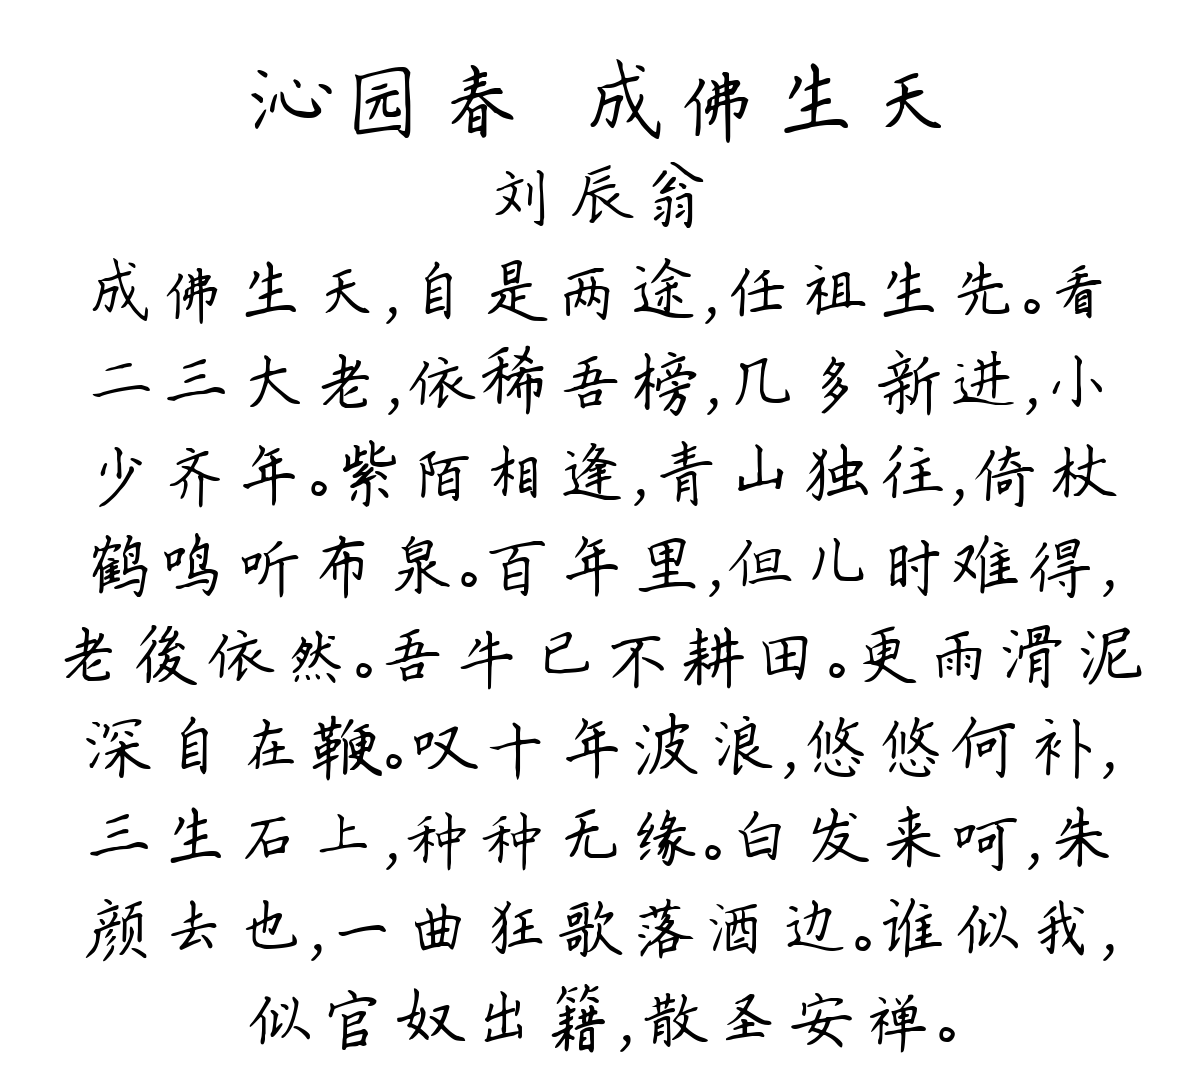 沁园春 成佛生天
刘辰翁
成佛生天,自是两途,任祖生先。看
二三大老,依稀吾榜,几多新进,小
少齐年。紫陌相逢,青山独往,倚杖
鹤鸣听布泉。百年里,但儿时难得,
老後依然。吾牛已不耕田。更雨滑泥
深自在鞭。叹十年波浪,悠悠何补,
三生石上,种种无缘。白发来呵,朱
颜去也,一曲狂歌落酒边。谁似我,
似官奴出籍,散圣安禅。